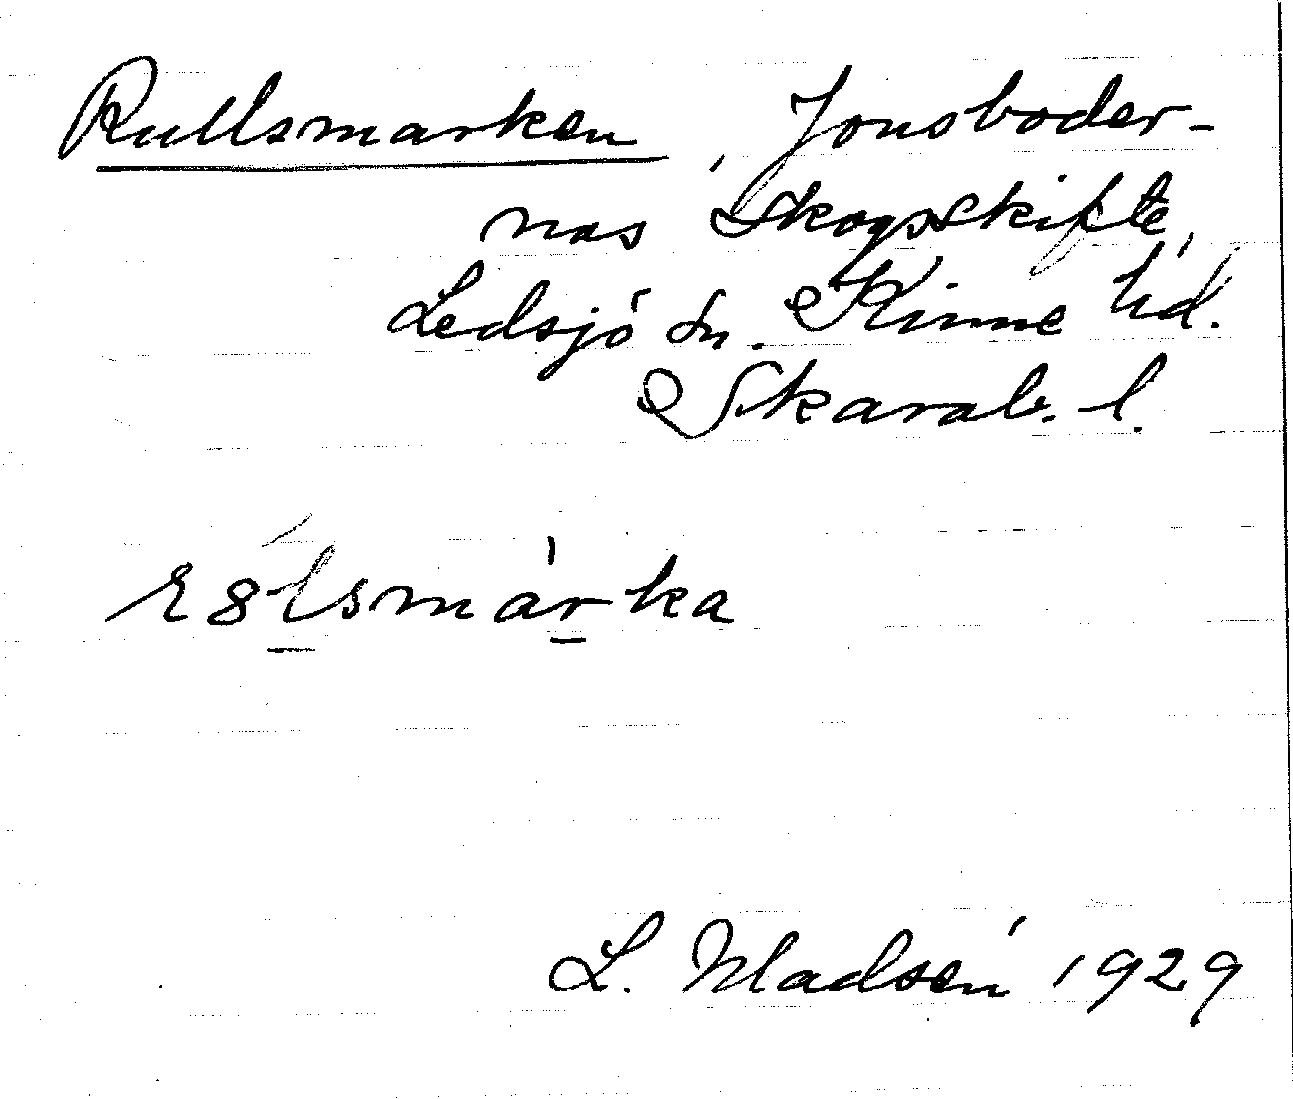 Rullsmarken, Jonsboder-
nas Skogsskifte,
Ledsjö sn. Kinne hd.
Skarab. l.
L. Madsén 1929